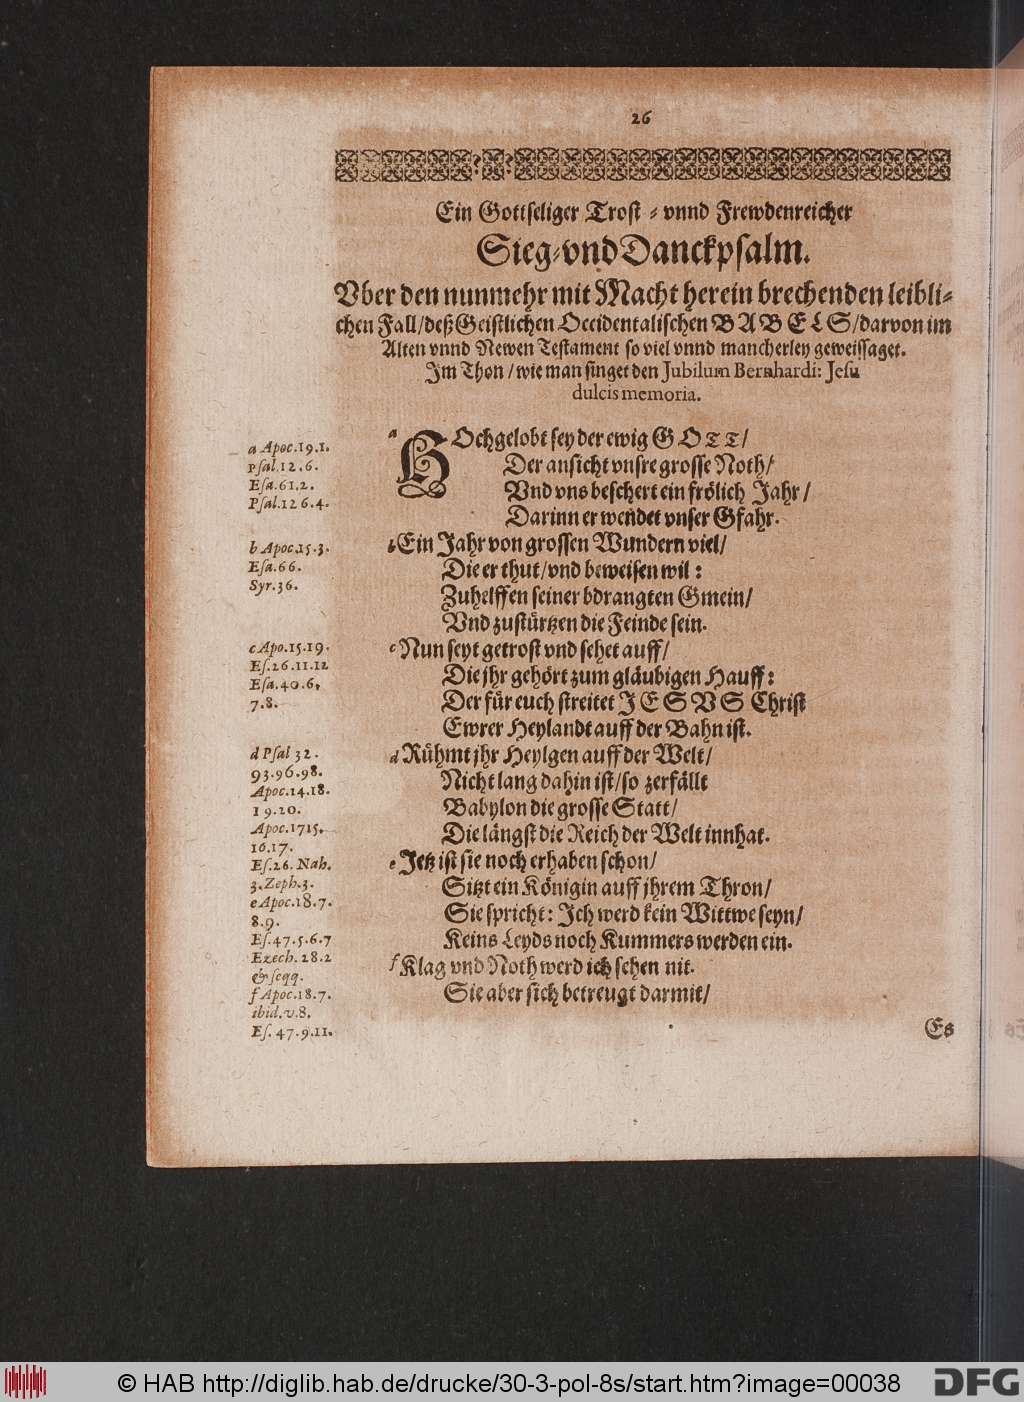 26
Ein Gottseliger Trost - vnnd Frewdenreicher
Sieg-vnd Danckpsalm.
Vber den nunmehr mit Macht herein brechenden leibli-
chen Fall/deß Geistlichen Occidentalischen BABELS/darvon im
Alten vnnd Newen Testament so viel vnnd mancherley geweissaget.
Im Thon/wie man singet den Jubilum Bernhardi: Jesu
dulcis memoria.
a HOchgelobt sey der ewig GOTT/
Der ansicht vnsre grosse Noth/
Vnd vns beschert ein frölich Jahr/
Darinn er wendet vnser Gfahr.
b Ein Jahr von grossen Wundern viel/
Die er thut/vnd beweisen wil:
Zuhelffen seiner bdrangten Gmein/
Vnd zustürtzen die Feinde sein.
c Nun seyt getrost vnd sehet auff/
Die jhr gehört zum gläubigen Hauff:
Der für euch streitet JESVS Christ
Ewrer Heylandt auff der Bahn ist.
d Rühmt jhr Heylgen auff der Welt/
Nicht lang dahin ist/so zerfällt
Babylon die grosse Statt/
Die längst die Reich der Welt innhat.
e Jetz ist sie noch erhaben schon/
Sitzt ein Königin auff jhrem Thron/
Sie spricht: Ich werd kein Wittwe seyn/
Keins Leyds noch Kummers werden ein.
f Klag vnd Noth werd ich sehen nit.
Sie aber sich betreugt darmit/
Es
a Apoc.19.1.
Psal.12.6.
Esa.61.2.
Psal.126.4.
b Apoc.15.3.
Esa.66.
Syr.36.
c Apo.15.19.
Es.26.11.12
Esa.40.6.
7.8.
d Psal 32.
93.96.98.
Apoc.14.18.
19.20.
Apoc.1715.
16.17.
Es.26. Nah.
3.Zeph.3.
e Apoc.18.7.
8.9.
Es.47.5.6.7
Ezech. 28.2
& seqq.
f Apoc.18.7.
ibid.v.8.
Es. 47.9.11.
© HAB http://diglib.hab.de/drucke/30-3-pol-8s/start.htm?image=00038
DFG